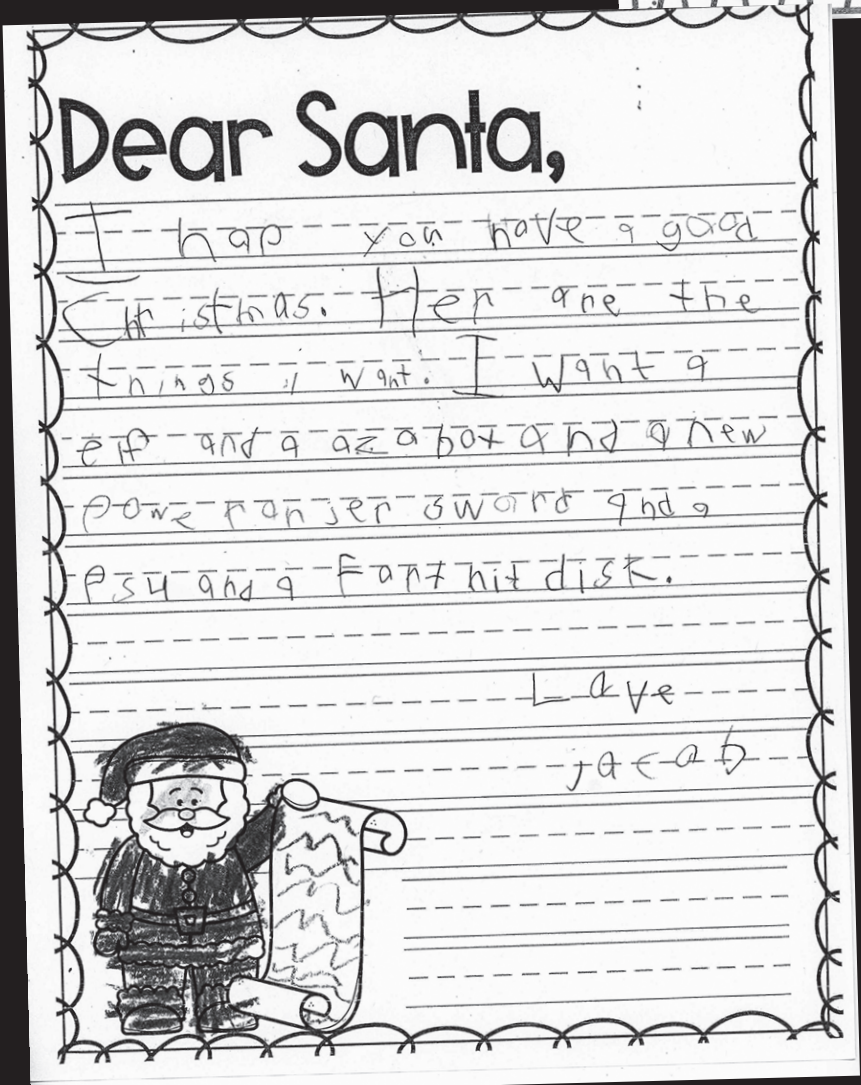 Dear Santa,
I hap you have a good
Christmas. Her are the
things i want. I want a
elf and a azabox and a new
powe ranjer sword and a
Psu and a Fartnit disk.
Lave
jacab